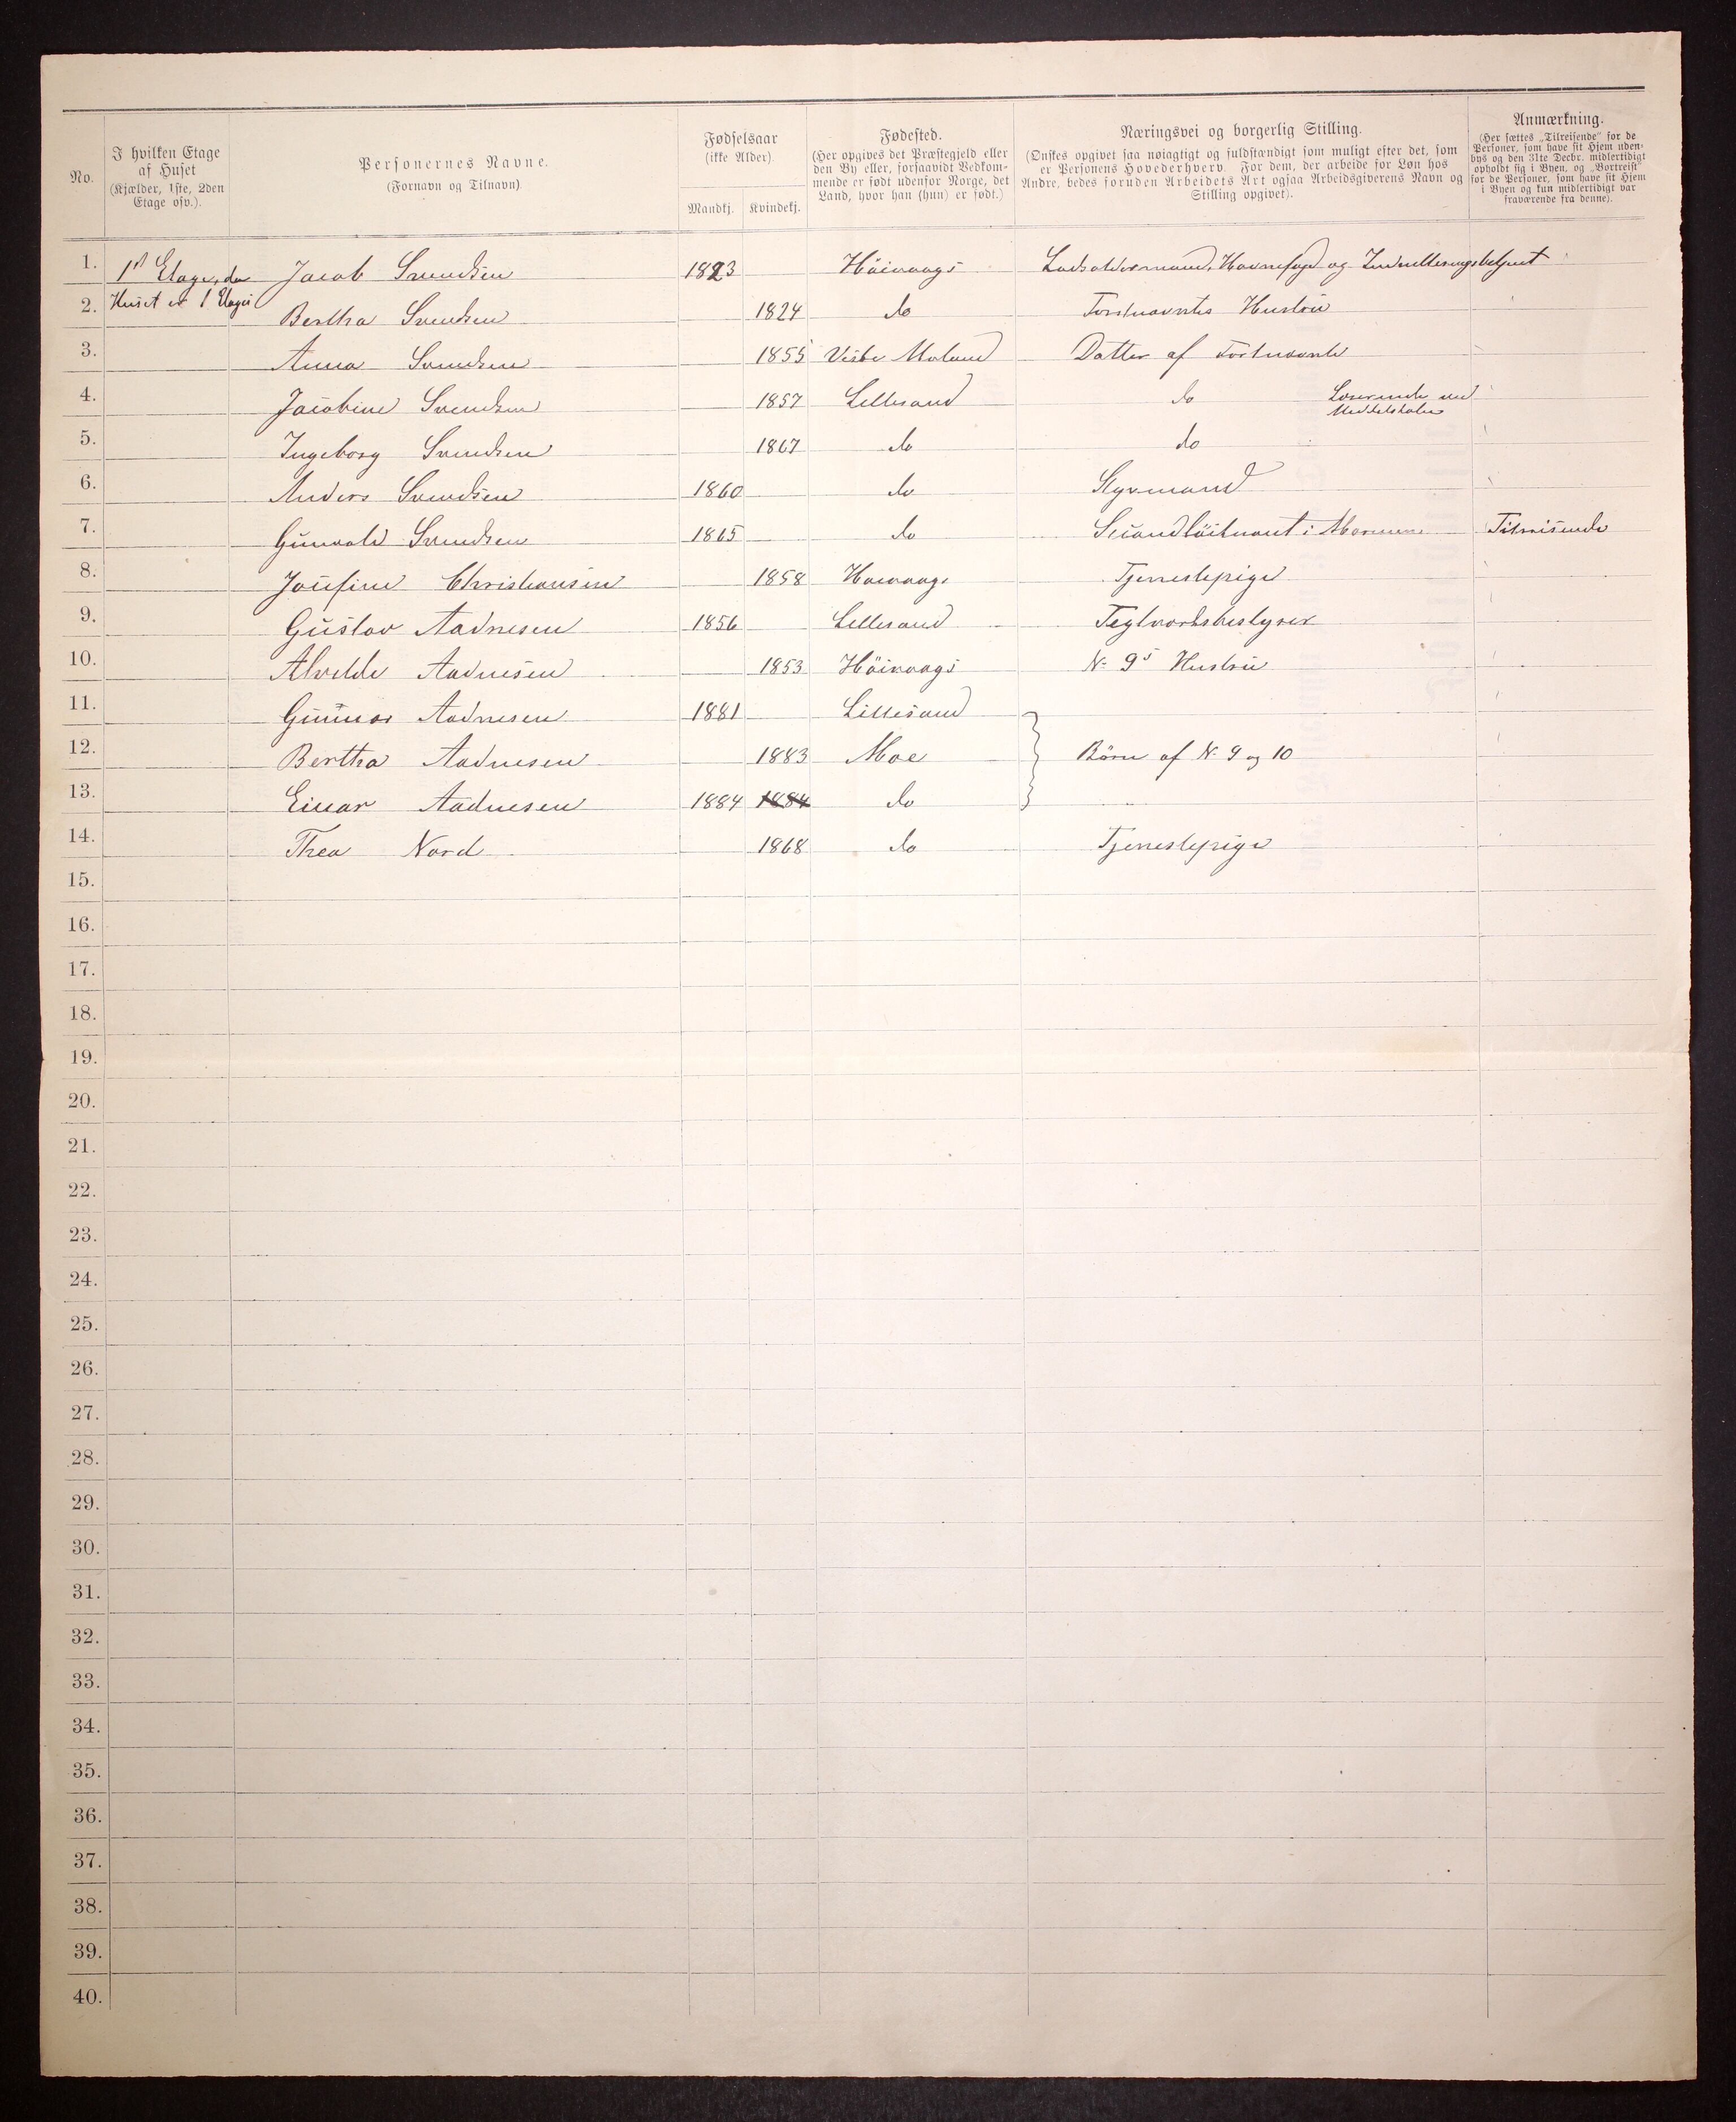 No.
I hvilken Etage af Huset (Kjælder, 1ste, 2den Etage osv.).
Personernes Navne. (Fornavn og Tilnavn)
Fødselsaar (ikke Alder)
Mandkj. Kvindekj.
Fødested. (Her opgives det Præstegjeld eller den By eller, forsaavidt Vedkommende er født udenfor Norge, det Land, hvor han (hun) er født.)
Næringsvei og borgerlig Stilling. (Ønskes opgivet saa nøiagtigt og fuldstændigt som muligt efter det, som er Personens Hovederhverv. For dem, der arbeide for Løn hos Andre, bedes foruden Arbeidets Art ogsaa Arbeidsgiverens Navn og Stilling opgivet).
Anmærkning. (Her sættes „Tilreisende" for de Personer, som have sit Hjem udenbys og den 31te Decbr. midlertidigt opholdt sig i Byen, og „Bortreist" for de Personer, som have sit Hjem i Byen og kun midlertidigt var fraværende fra denne).
1. 1st Etage, da Jacob Svendsen 1823 Höivaags Lodsoldermand, Havnefoged og Indrulleringsbetjent
2. Huset er 1 Etages Bertha Svendsen 1824 do Forstnævntes Hustru
3. Anna Svendsen 1855 Vestre Moland Datter af Forstnævnte
4. Jacobine Svendsen 1857 Lillesand do Lærerinde ved Middelskolen
5. Ingeborg Svendsen 1867 do do
6. Anders Svendsen 1860 do Styrmand
7. Gunvald Svendsen 1865 do Secondlöitnant i Marinen Tilreisende
8. Josefine Christiansen 1858 Tjenestepige
9. Gustav Aadnesen 1856 Lillesand Teglværksbestyrer
10. Alvilde Aadnesen 1853 Höivaags No 9s Hustru
11. Gunnar Aadnesen 1881 Lillesand
12. Bertha Aadnesen 1883 Moe Börn af No 9 og 10
13. Einar Aadnesen 1884 1884 do
14. Thea Nord 1868 do Tjenestepige
15.
16.
17.
18.
19.
20.
21.
22.
23.
24.
25.
26.
27.
28.
29.
30.
31.
32.
33.
34.
35.
36.
37.
38.
39.
40.